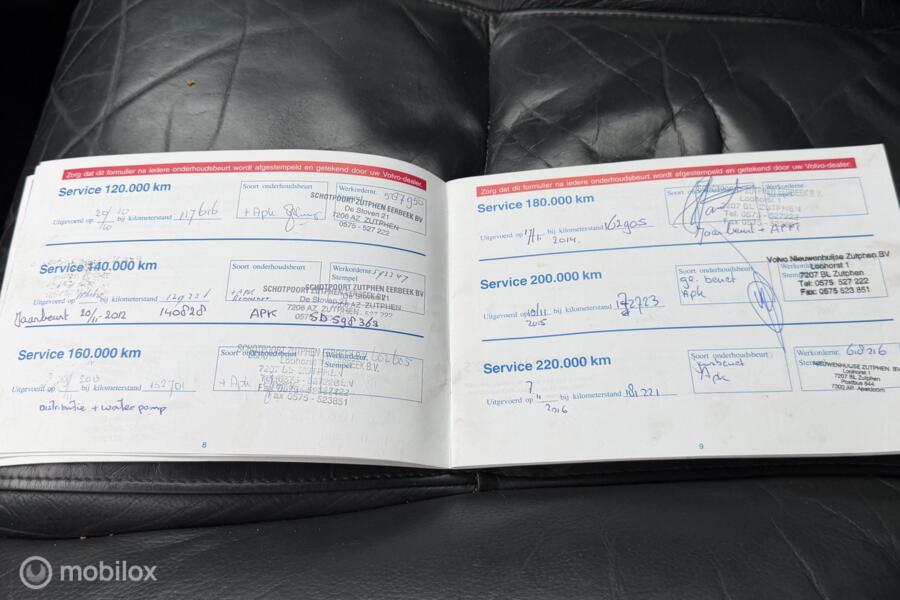 Zorg dat dit formulier na iedere onderhoudsbeurt wordt afgestempeld en getekend door uw Volvo-dealer.
Service 120.000 km
Soort onderhoudsbeurt
Werkordernr.
587950
Uitgevoerd op bij kilometerstand 117616
+ Apk
SCHOTPOORT ZUTPHEN EERBEEK BV
De Stoven 21
7206 AZ ZUTPHEN
0575 - 527 222
Service 140.000 km
Soort onderhoudsbeurt
Werkordernr.
Stempel
Uitgevoerd bij kilometerstand
SCHOTPOORT ZUTPHEN EERBEEK BV
De Stoven 21
7206 AZ ZUTPHEN
0575 - 527 222
Jaarbeurt 20/11-2012 140828 APK SD598363
Service 160.000 km
Soort onderhoudsbeurt
SCHOTPOORT ZUTPHEN EERBEEK B.V.
Loohorst 1
7207 BL ZUTPHEN
Fax 0575 - 523851
Uitgevoerd op 2013 bij kilometerstand 152701
+ Apk
Distributie + waterpomp
8
Zorg dat dit formulier na iedere onderhoudsbeurt wordt afgestempeld en getekend door uw Volvo-dealer.
Service 180.000 km
Soort
Werkordernr.
Loohorst 1
7207 BL ZUTPHEN
Tel. 0575 - 527222
Uitgevoerd op 17/11 2014. bij kilometerstand 162905
Jaarbeurt + APK
Service 200.000 km
Soort onderhoudsbeurt
gr. beurt
Apk
Volvo Nieuwenhuijse Zutphen BV
Loohorst 1
7207 BL Zutphen
Tel: 0575 527 222
Fax: 0575 523 851
Uitgevoerd op 10/11 2015 bij kilometerstand 172723
Service 220.000 km
Soort onderhoudsbeurt
Apk
Werkordernr. 618216
NIEUWENHUIJSE ZUTPHEN B.V.
Loohorst 1
7207 BL Zutphen
Postbus 644
7300 AP Apeldoorn
Uitgevoerd op 7/11 2016 bij kilometerstand 181221
9
mobilox